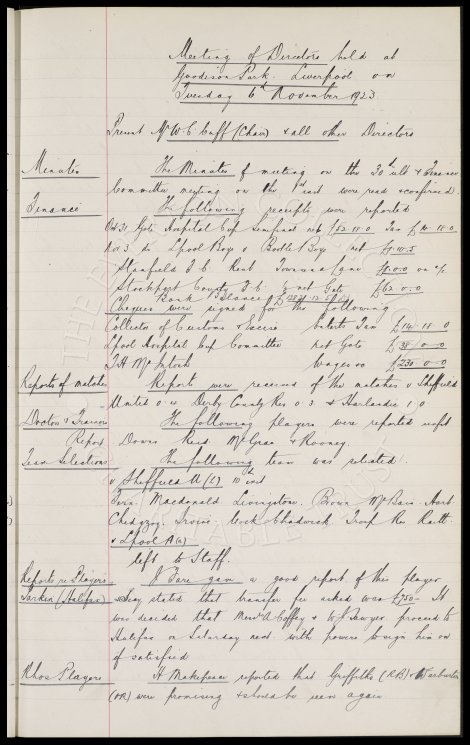 Meeting of Directors held at
Goodison Park. Liverpool on
Tuesday 6th November 1923
Present Mr W.C. Cuff (Chair) & all other Directors
Minutes The Minutes of meeting on the 30th ult & Finance
Committee meeting on the 1st inst were read & confirmed.
Finance The following receipts were reported
Oct 31 Gate Hospital Cup Semifinal net £52.18.0 Tax £14.18.0
Nov 3 do L'pool Boys v Bootle Boys net
Stanfield F.C. Rent on a/c
Stockport County F.C. % net Gate £62.0.0
Bank Balance
Cheques were signed for the following
Collector of Customs & Excise Ents Tax £14.18.0
L'pool Hospital Cup Committee net Gate £38.0.0
T.H. McIntosh Wages &c £230.0.0
Reports of matches Reports were received of the matches v Sheffield
United 0.4 Derby County Res 0.3. & Harlandic 1.0
Doctors & Trainers The following players were reported unfit
Report Downs Reid McGrae & Rooney.
Team Selections The following team was selected
v Sheffield U (L) 10th inst
Fern. Macdonald Livingstone. Brown McBain. Hart
Chedgzoy. Irvine. Cock Chadwick. Troup Res Raitt.
v L'pool A (a)
left to Staff.
Reports re Players J Fare gave a good report of this player
Parker (Halifax) & Seay stated that transfer fee asked was £750 - It
was decided that Messrs A Coffey & W J Sawyer proceed to
Halifax on Saturday next with powers to sign him on
if satisfied
Rhos Players H Makepeace reported that Griffiths (RB) & Warburton
(OR) were promising & should be seen again